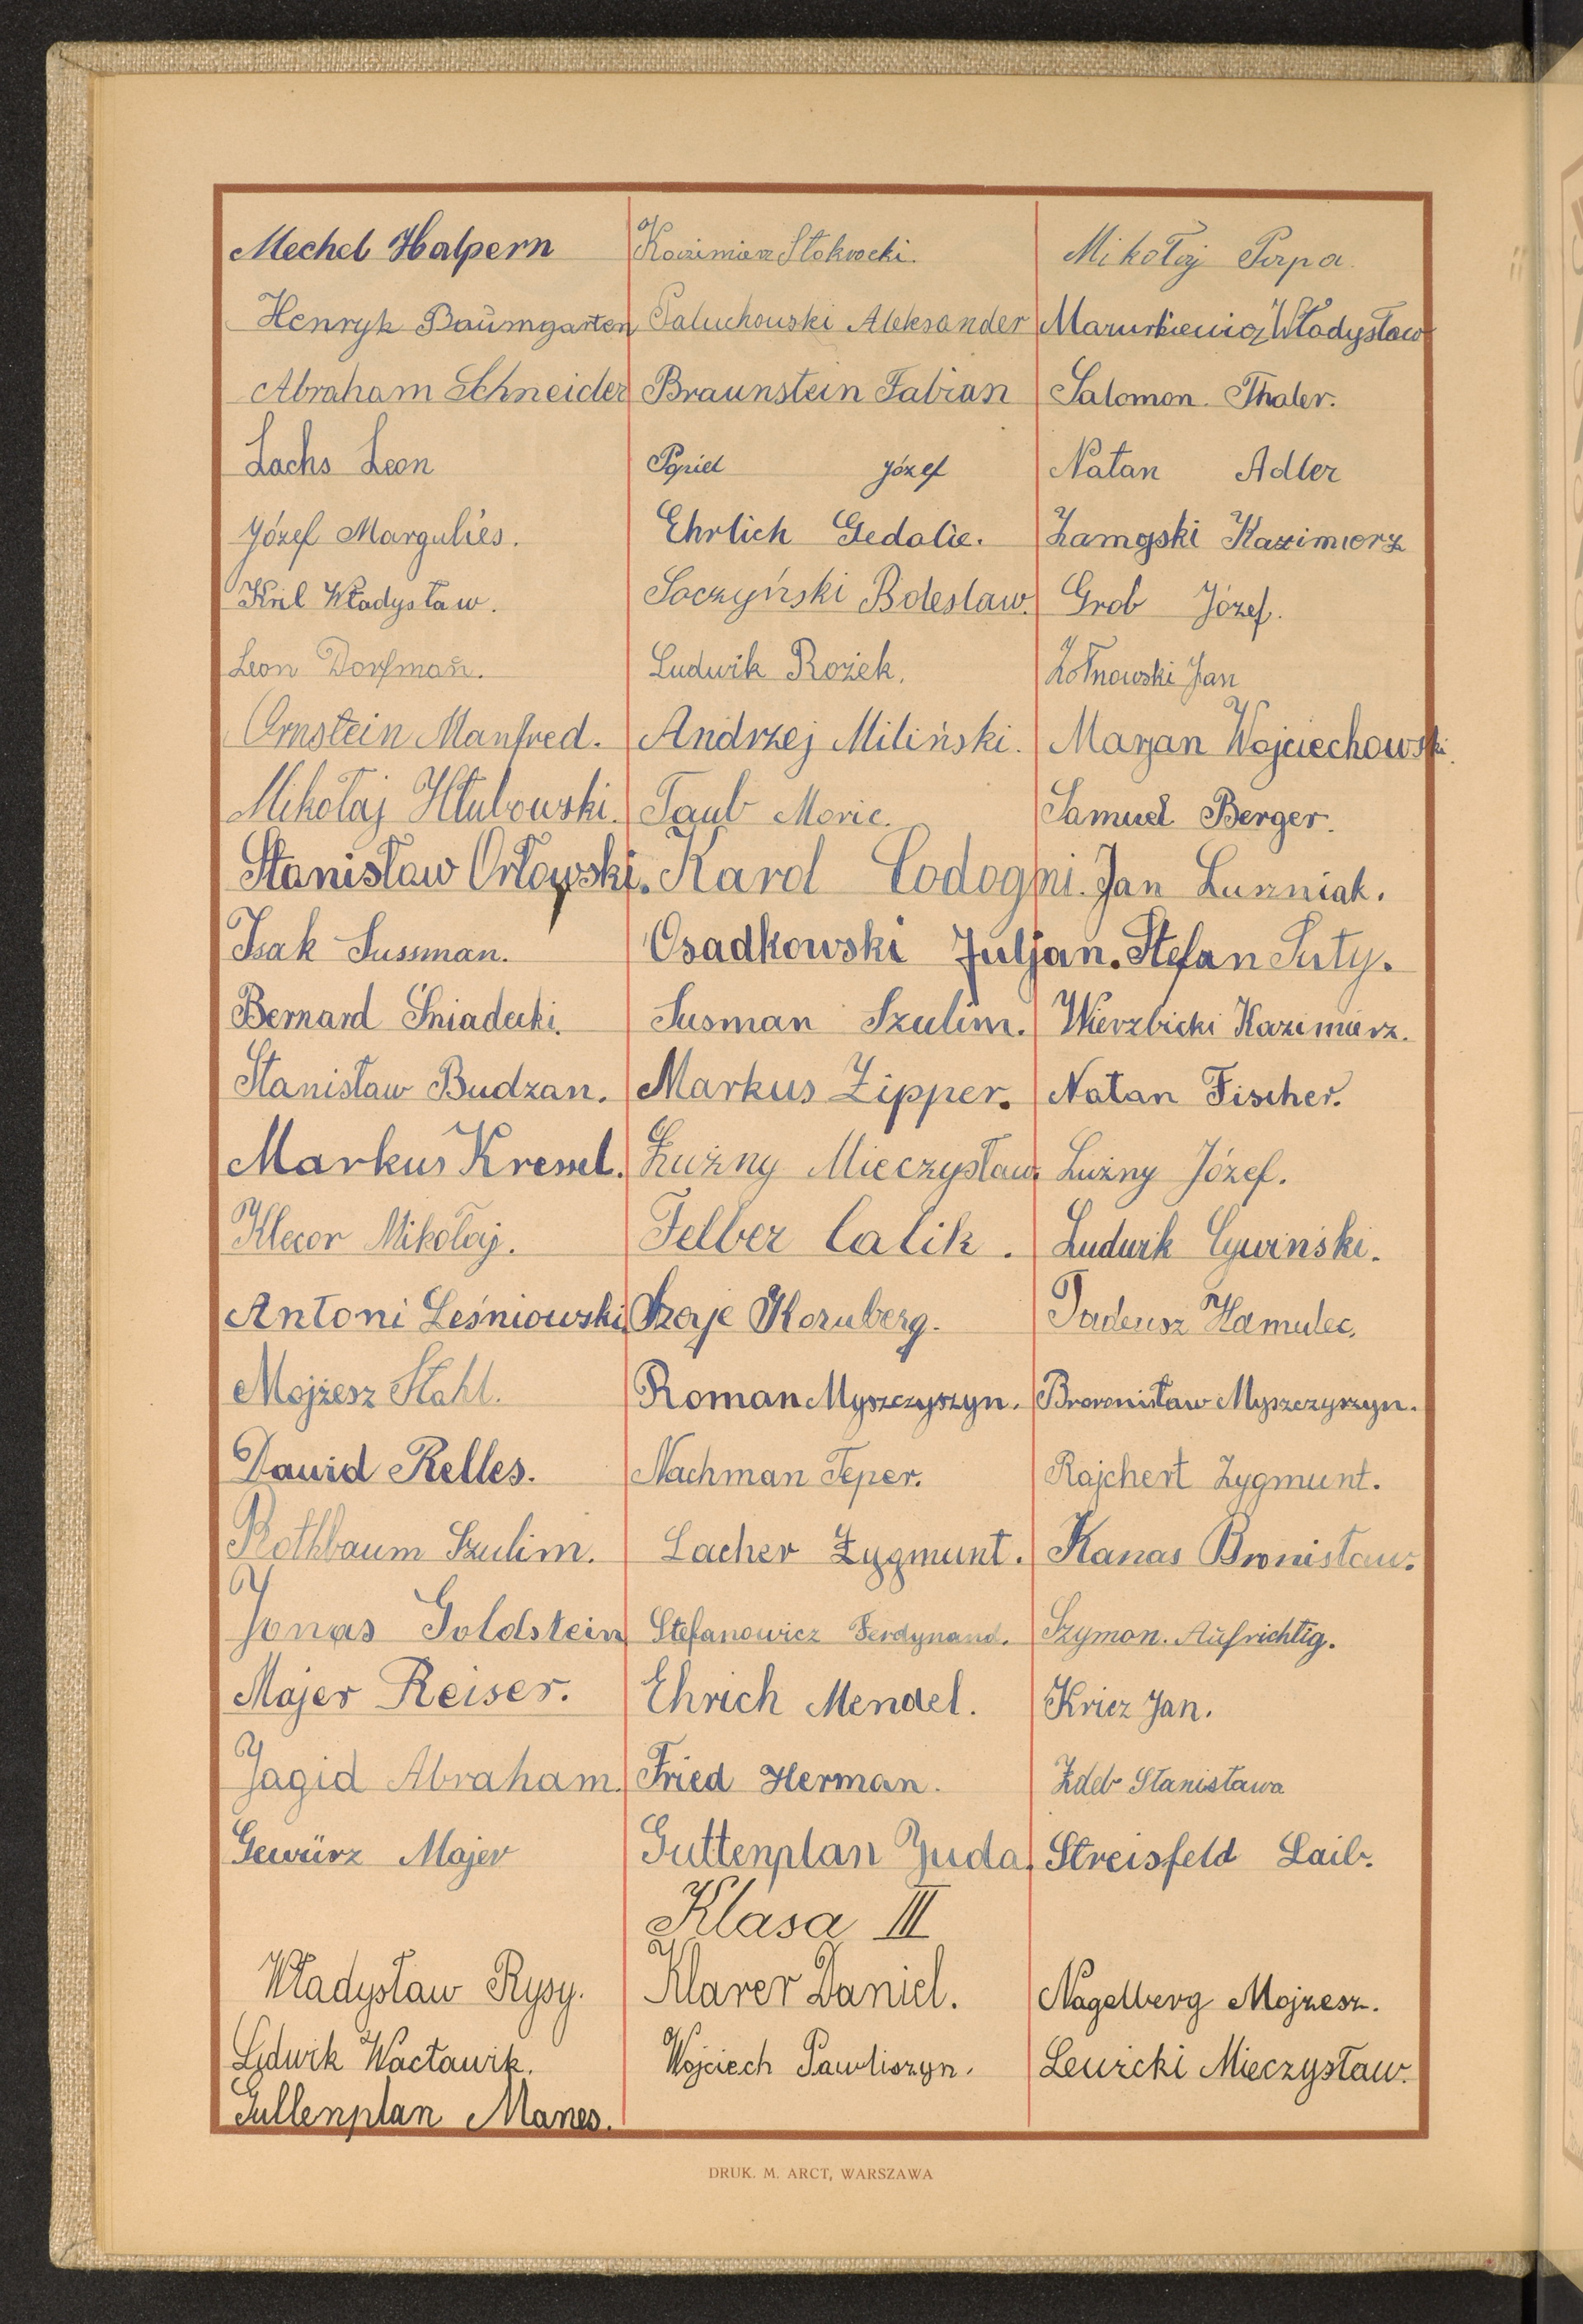 Mechel Halpern
Kazimierz Stokrocki.
Mikołaj Perpa.
Henryk Baumgarten
Paluchowski Aleksander
Mazurkiewicz Władysław
Abraham Schneider
Braunstein Fabian
Salomon. Thaler.
Lachs Leon
Popiel Józef
Natan Adler
Józef Margulies.
Ehrlich Gedalie.
Zamojski Kazimierz
Kril Władysław.
Soczyński Bolesław.
Grob Józef.
Leon Dorfman.
Ludwik Rożek.
Żółnowski Jan
Ornstein Manfred.
Andrzej Miliński.
Marjan Wojciechowski.
Mikołaj Hłubowski.
Taub Moric.
Samuel Berger.
Stanisław Orłowski.
Karol Codogni.
Jan Luszniak.
Izak Sussman.
Osadkowski Juljan.
Stefan Suty.
Bernard Śniadecki.
Susman Szulim.
Wierzbicki Kazimierz.
Stanisław Budzan.
Markus Zipper.
Natan Fischer.
Markus Kressel.
Luźny Mieczysław.
Luźny Józef.
Klecor Mikołaj.
Felber Calik.
Ludwik Cywiński.
Antoni Leśniowski
Szaje Kornberg.
Tadeusz Hamulec.
Mojżesz Stahl.
Roman Myszczyszyn.
Broronisław Myszczyszyn.
Dawid Relles.
Nachman Teper.
Rajchert Zygmunt.
Rothbaum Szulim.
Lacher Zygmunt.
Kanas Bronisław.
Jonas Goldstein
Stefanowicz Ferdynand.
Szymon. Aufrichtig.
Majer Reiser.
Ehrich Mendel.
Kricz Jan.
Jagid Abraham.
Fried Herman.
Zdeb Stanisława
Gewürz Majer
Guttenplan Juda.
Streisfeld Laib.
Klasa III
Władysław Rysy.
Klarer Daniel.
Nagelberg Mojżesz.
Ludwik Wacławik.
Wojciech Pawliszyn.
Lewicki Mieczysław.
Gullenplan Manes.
DRUK. M. ARCT, WARSZAWA